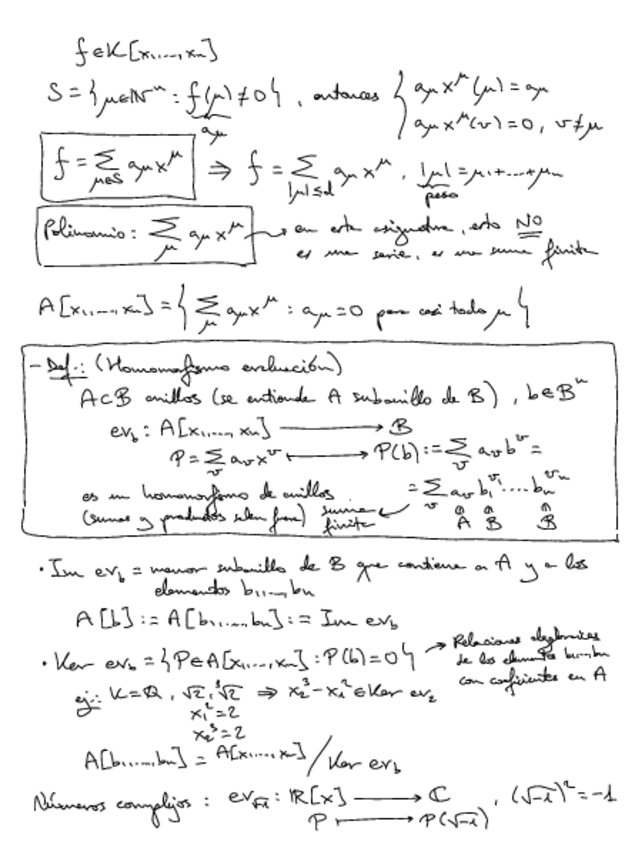 f ∈ K[x₁,...,xₙ]
S = {μ∈ℕⁿ : f(μ) ≠ 0}, entonces { aμ x^μ(μ) = aμ
aμ
aμ x^μ(ν) = 0, ν ≠ μ
f = Σ_{μ∈S} aμ x^μ ⇒ f = Σ_{|μ|≤d} aμ x^μ, |μ| = μ₁+...+μₙ
peso
Polinomio: Σ_μ aμ x^μ → en esta asignatura, esto NO
es una serie, es una suma finita
A[x₁,...,xₙ] = { Σ_μ aμ x^μ : aμ = 0 para casi todo μ }
- Def.: (Homomorfismo evaluación)
A⊂B anillos (se entiende A subanillo de B), b∈Bⁿ
ev_b : A[x₁,...,xₙ] ⟶ B
P = Σ_ν aν x^ν ⟼ P(b) := Σ_ν aν b^ν =
es un homomorfismo de anillos = Σ_ν aν b₁^ν₁ .... bₙ^νₙ
(sumas y productos salen fuera) suma finita
A B B
· Im ev_b = menor subanillo de B que contiene a A y a los
elementos b₁,...,bₙ
A[b] := A[b₁,...,bₙ] := Im ev_b
· Ker ev_b = {P∈A[x₁,...,xₙ] : P(b) = 0} → Relaciones algebraicas
de los elementos b₁...bₙ
con coeficientes en A
ej.: K = Q, √2, ³√2 ⇒ x₂³ - x₁² ∈ Ker ev₂
x₁² = 2
x₂³ = 2
A[b₁,...,bₙ] = A[x₁,...,xₙ] / Ker ev_b
Números complejos : ev_{√-1} : ℝ[x] ⟶ ℂ, (√-1)² = -1
P ⟼ P(√-1)